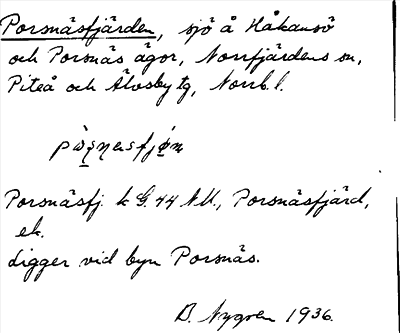 Porsnäsfjärden, sjö å Håkansö
och Porsnäs ägor, Norrfjärdens sn,
Piteå och Älvsby tg, Norrb. l.
Porsnäsfj. k G. 44 NU., Porsnäsfjärd,
ek.
Ligger vid byn Porsnäs.
D. Nygren 1936.